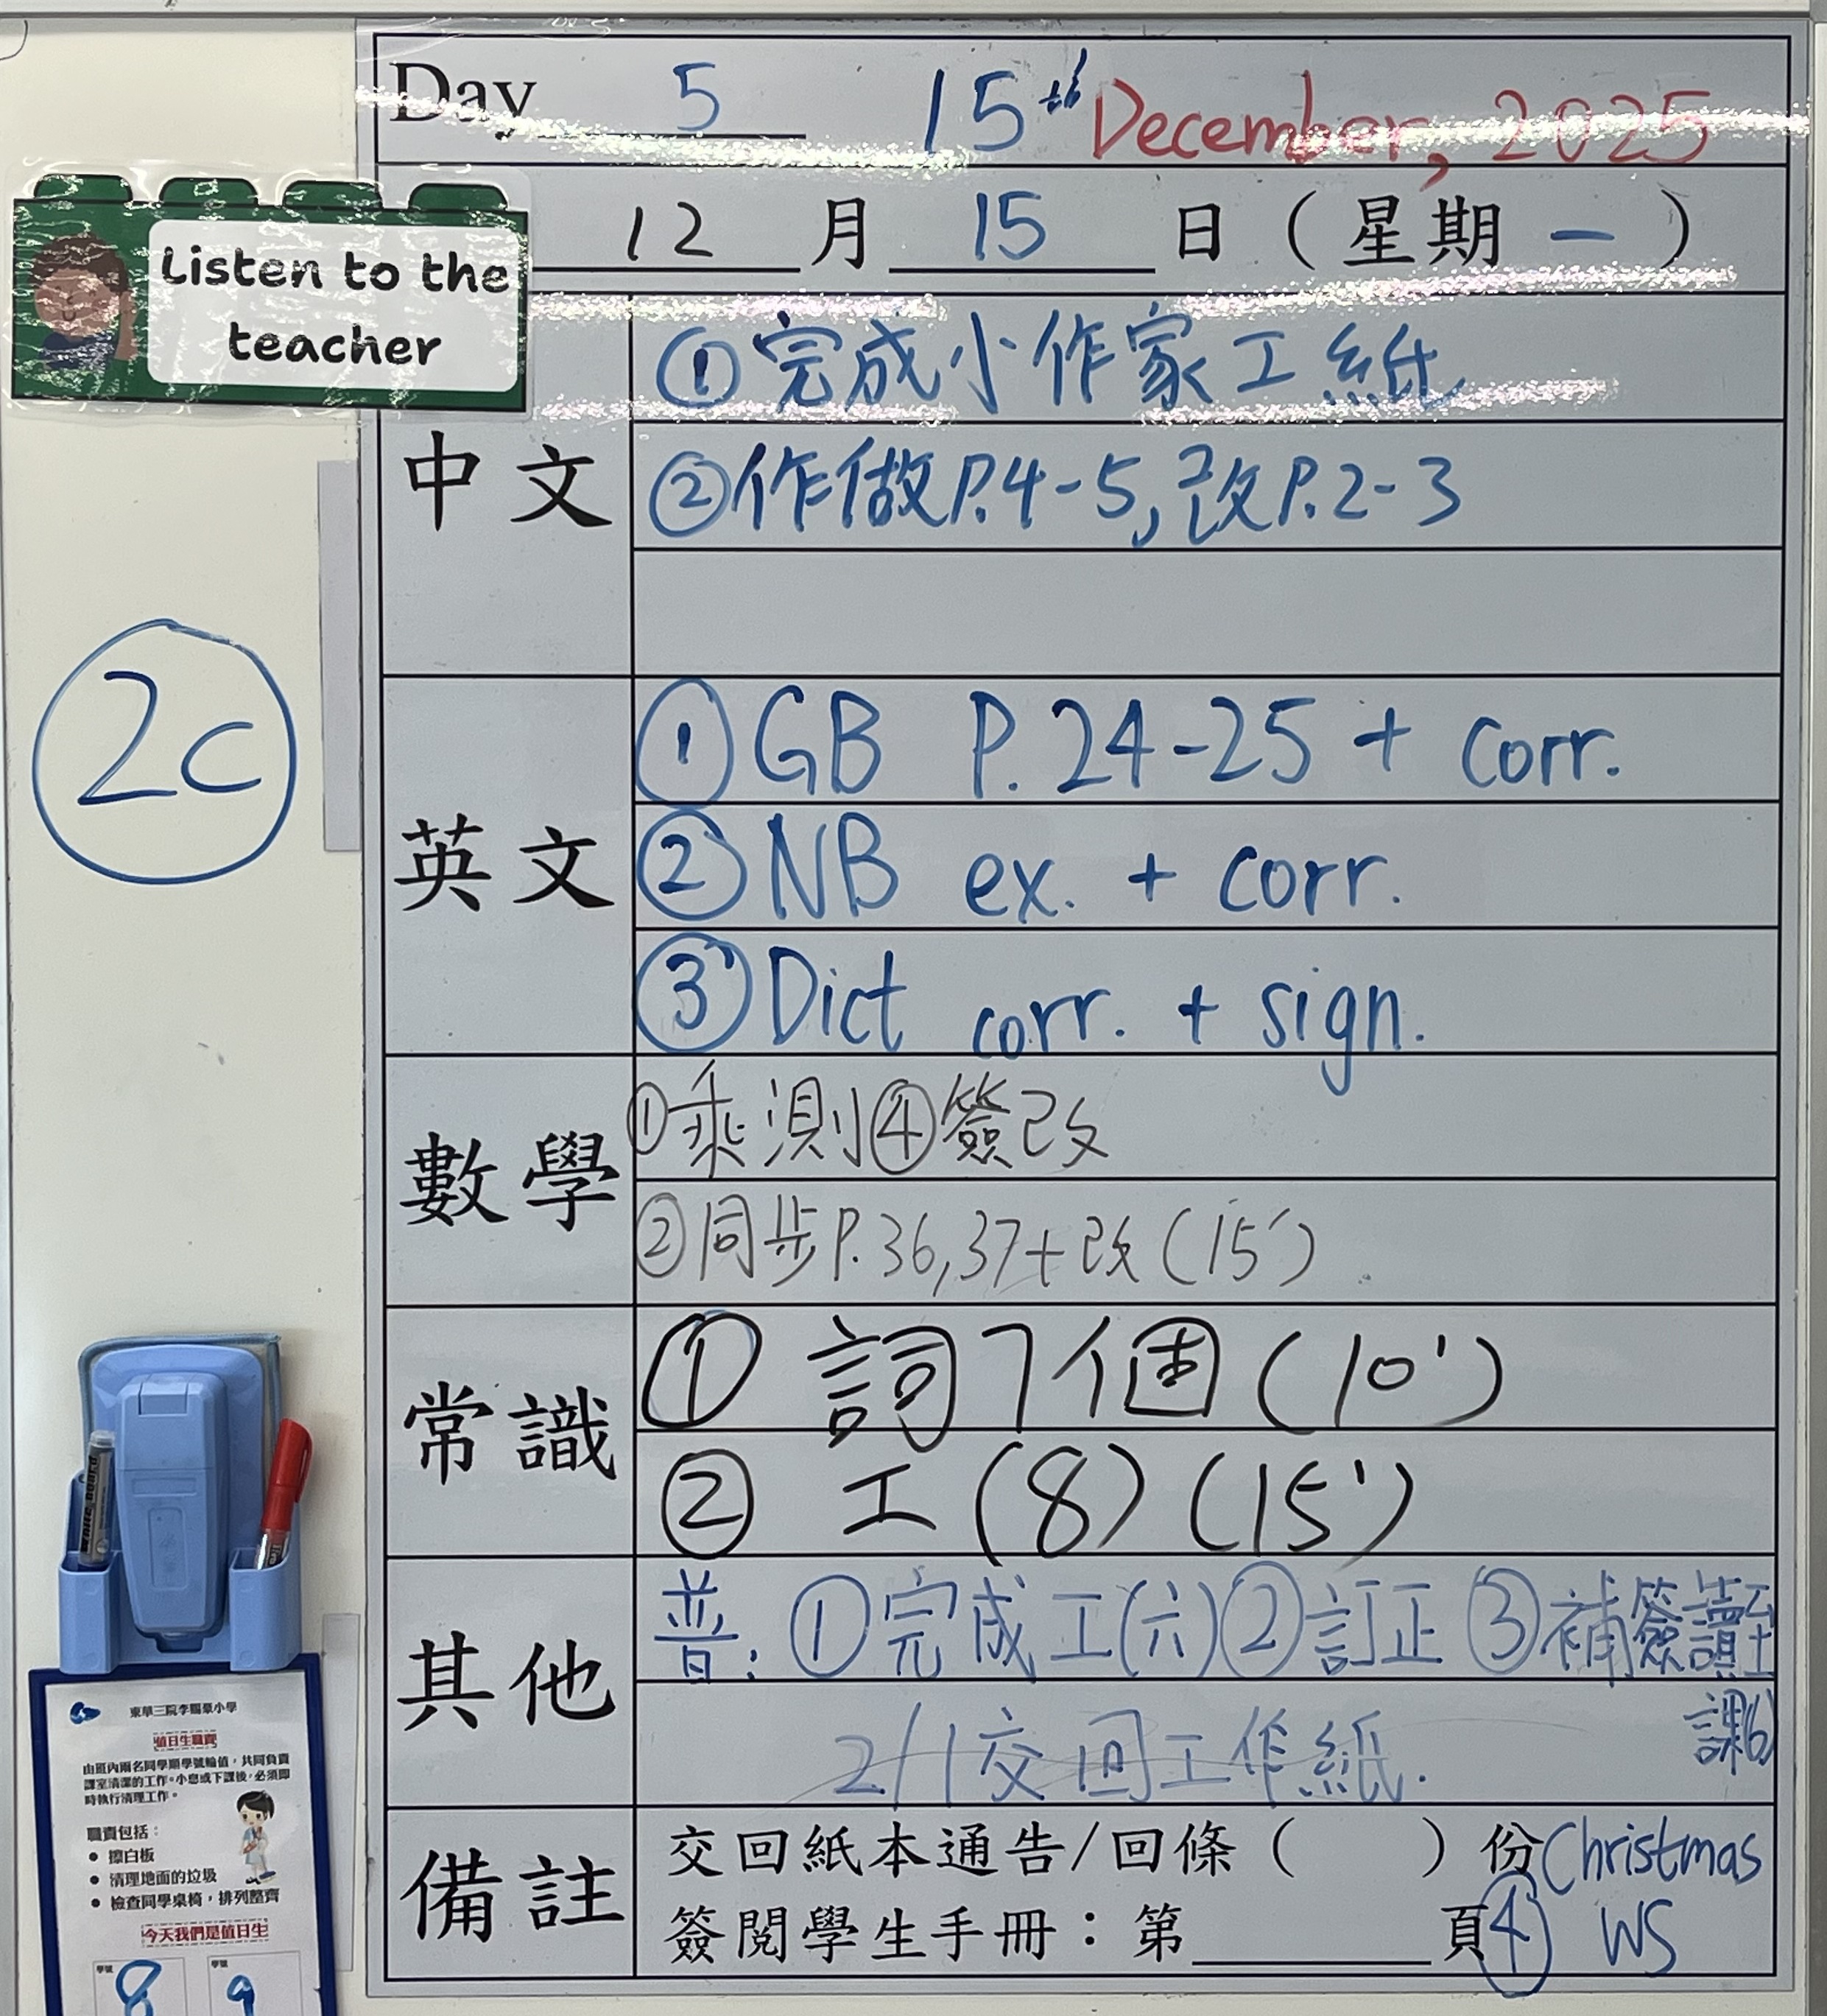 Day 5 15th December, 2025
12 月 15 日（星期 一 ）
Listen to the
teacher
中文
① 完成小作家工紙
② 作做P.4-5, 改P.2-3
2C
英文
① GB P.24-25 + corr.
② NB ex. + corr.
③ Dict corr. + sign.
數學
① 乘測④簽改
② 同步P.36,37+改(15')
常識
① 詞7個(10')
② 工(8)(15')
其他
普: ①完成工(六) ②訂正 ③補簽讀至
課(6)
2/1交回工作紙.
備註
交回紙本通告/回條（ ）份
簽閱學生手冊：第 頁
④ Christmas
WS
White Board
東華三院李賜豪小學
值日生職責
由班內兩名同學順學號輪值，共同負責
課室清潔的工作。小息或下課後，必須即
時執行清理工作。
職責包括：
• 擦白板
• 清理地面的垃圾
• 檢查同學桌椅，排列整齊
今天我們是值日生
學號 8 學號 9